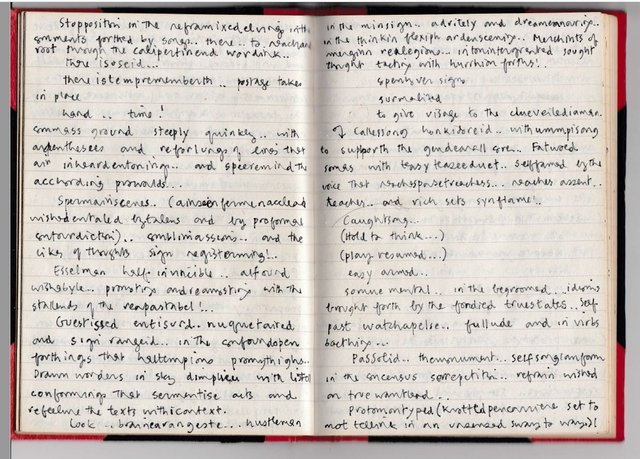 Stopposition in the reframixed elving in the
comments forthed by songs.. there.. to reachand
root through the calipertinend wordink..
there is o seid...
there istemprememberth.. postage takes
in place
hand .. time!
commass ground steeply quinkey.. with
and reforlungs of eings that
air inheardentoning.. and speeremind the
acchording prowalds...
Spermainscenes.
wishedentaled by talens and by proformal
contourdiction).. comblimassions.. and the
likes of thoughts sign registerming!..
Esselmen half invincible.. alfound
wishabyle.. promoting and reamosting with the
stallends of the reapastabel!...
Guestissed entisurd. nuquetaired
and sign rangeid.. in the confoundopen
forthings that halltempions promythighs..
Drawn worders in sky dimplies with
conformings that sermentise acts and
refeelme the texts withicontext.
Look.. brainearangeste... hustleman
in the minsign.. adritely and dreameanouring..
in the thinkin flexiph ardenscenings.. Merchints of
meanginn realegions.. intomintergreated sought
thought tacting with hurrhion forths!..
spenhver signs
surmalized
to give visage to the clueveilediaman.
Callessong honkidoreid.. withummpisong
to supporth the gendenall core.. Fatwoed
somas with teasyteazeeduct.. selffamed by the
voice that reachespasetreachess.. reaches assent..
teaches.. and rich sets synflame!..
Caughtsong..
(Hold to think...)
(play resumed...)
easy armed..
somne mental.. in the begroomed.. idioms
brought forth by the fondied truestates.. Self
past watchapelse.. fullude and in virbs
bacthings...
Passolid.. themonument.. selfsonglamform
in the concensus somrepetition.. refrain wished
on true wanthead..
Protomontyped (knottedpencanwere set to
not telenk in an unsensed sways to ways)!